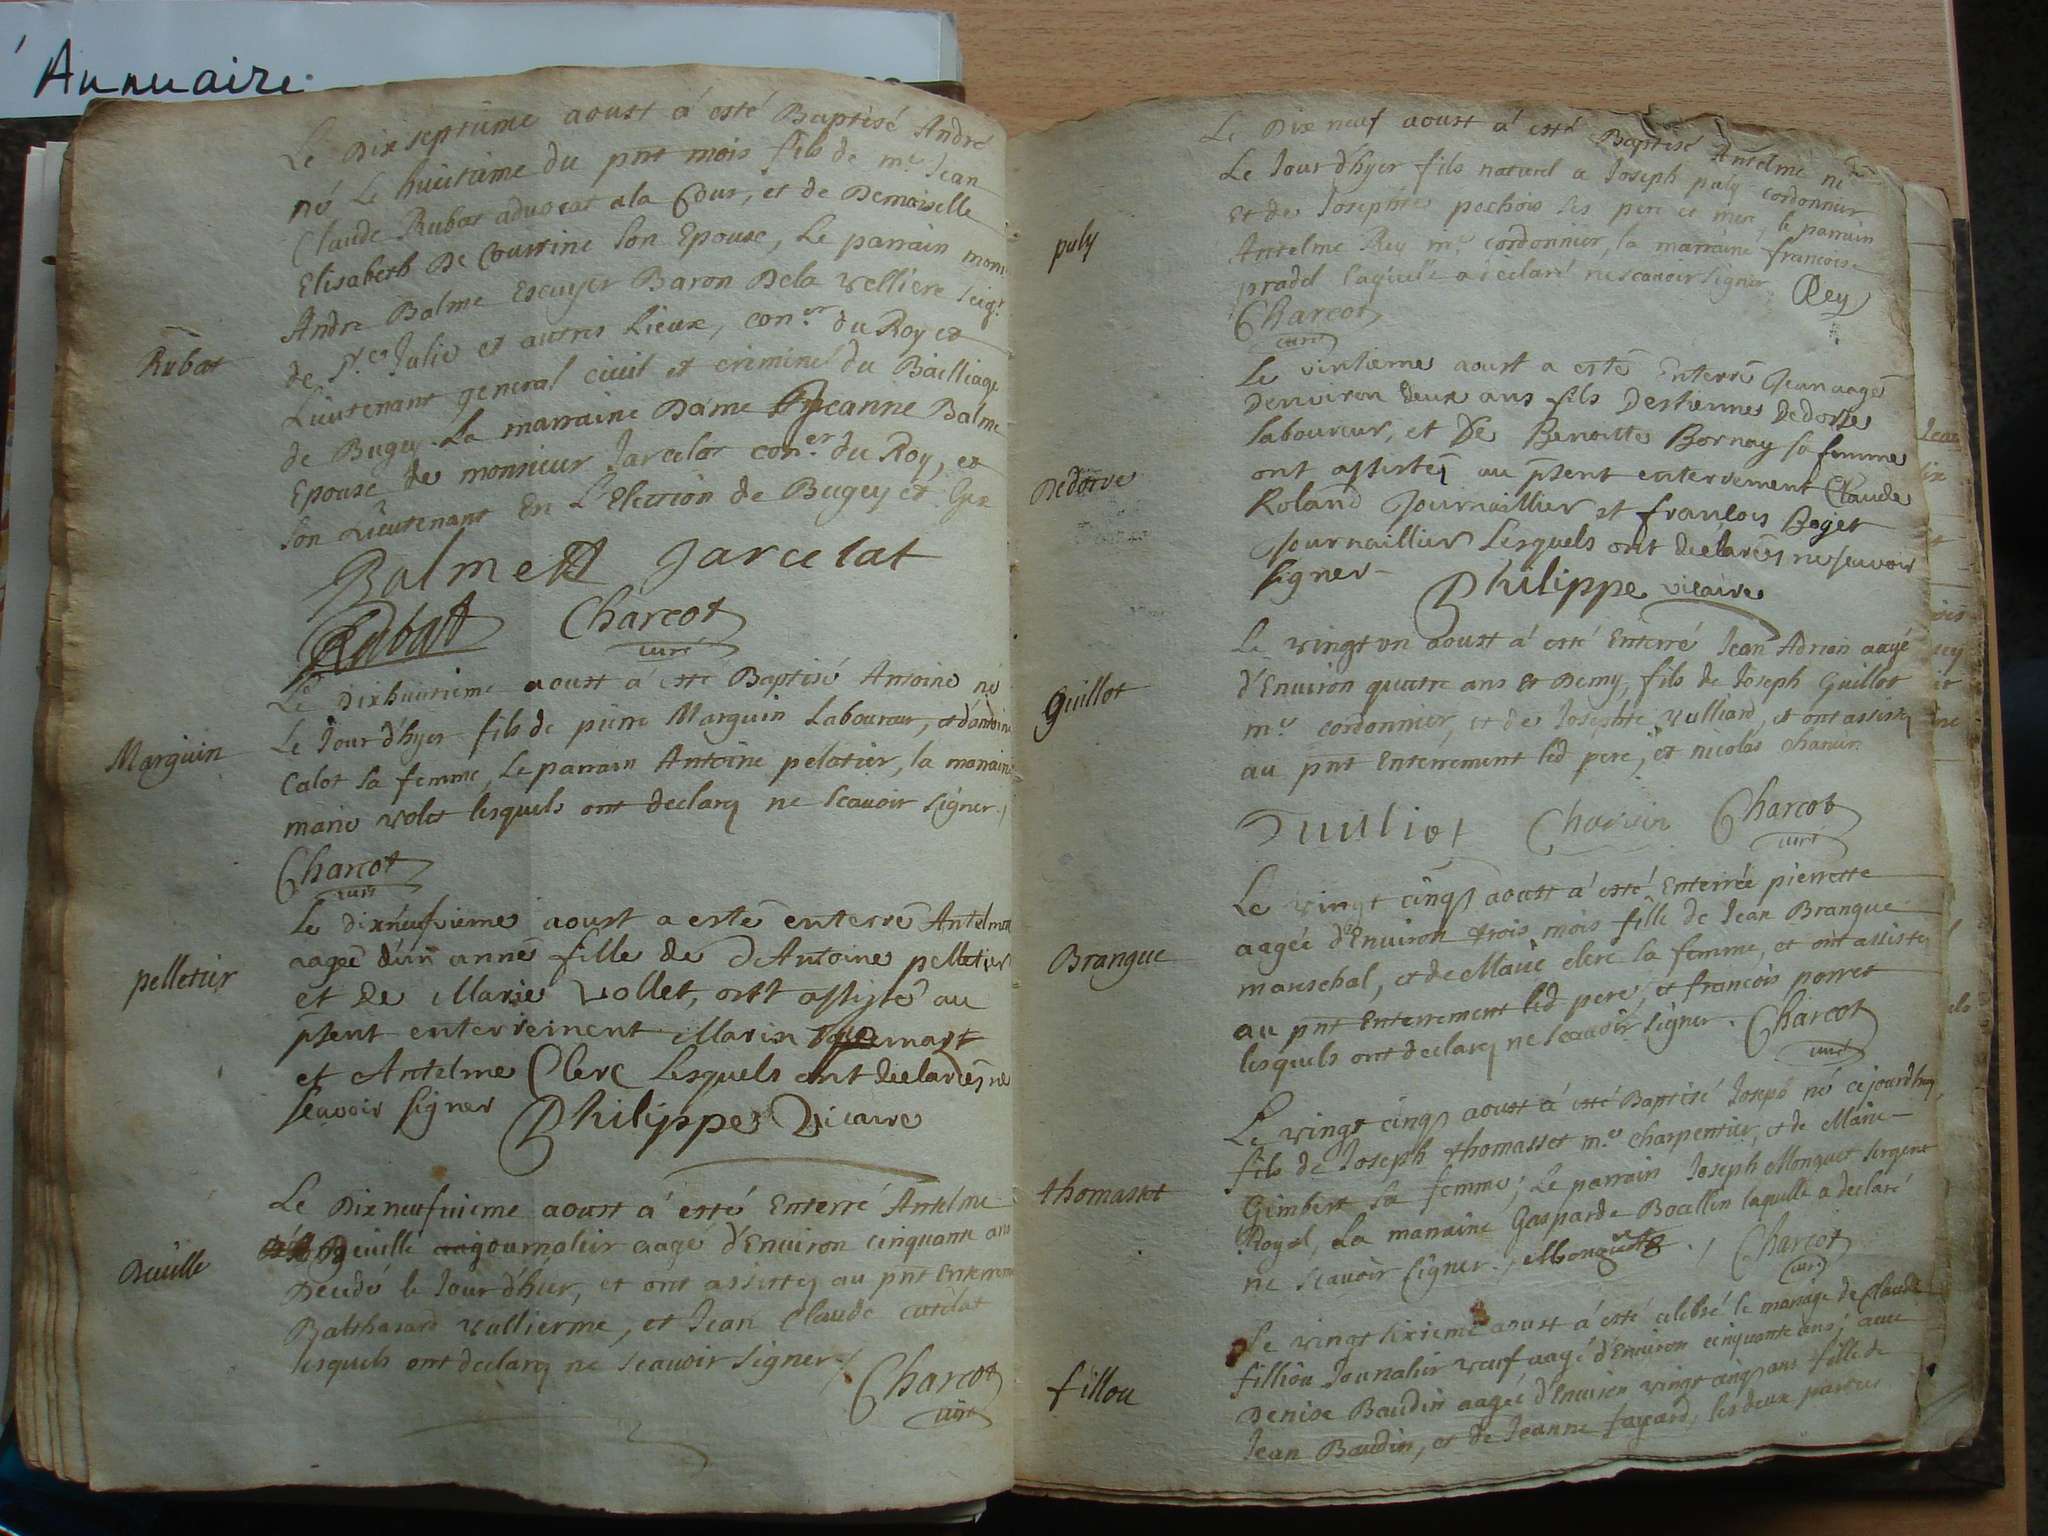 Annuaire
Le Dix septiéme aoust á esté Baptisé André
né Le huictiéme du pnt mois fils de mr Jean
Claude Rubat advocat a la Cour, et de Demoiselle
Elisabeth De Coussine son Epouse, Le parrain
André Balme Escuyer Baron Dela vellière seigr
de Ste Julie et autres Lieux, coner du Roy et
Lieutenant general civil et criminel du Bailliage
de Bugey. La marraine Dame Jeanne Balme
Epouse de monsieur Jarcelat coner du Roy, et
son Lieutenant En L'Election de Bugey et Gex
Balme Jarcelat
Rubat Charcot
curé
Rubat
Le Dixhuitieme aoust á esté Baptisé Antoine né
Le Jour d'hyer fils de pierre Marguin Laboureur, et d'antoine
Calot sa femme, Le parrain Antoine peletier, la marraine
marie volet lesquels ont declarez ne scavoir signer.
Charcot
curé
Marguin
Le dixneufvieme aoust a esté enterré Antelme
aagée d'un année fille de d'Antoine pelletier
et de Marie Vollet, ont assisté au
psent enterrement Marin
et Antelme Clerc Lesquels ont declarés ne
scavoir signer Philippe Vicaire
pelletier
Le Dixneufvieme aoust á esté Enterré Antelme
Deville journalier aagé d'Environ cinquante ans
Decedé le Jour d'hier, et ont assistez au pnt Enterrement
Balthasard vullierme, et Jean Claude
lesquels ont declarez ne scavoir signer
Charcot
curé
Deville
Le Dix neuf aoust á esté Baptisé Antelme né
Le Jour d'hyer fils naturel a Joseph puly cordonnier
Et de Josephte pochois ses pere et mere, le parrain
Antelme Rey mr cordonnier, la marraine francoise
pradel laquelle a declaré ne scavoir signer, Rey
Charcot
curé
puly
Le vintieme aoust a esté Enterré Jean aagé
Denviron deux ans fils Destienne Dedorve
laboureur, et De Benoitte Bornay sa femme
ont assistez au psent enterrement Claude
Roland Journaillier et francois Boget
Journaillier Lesquels ont declarés ne scavoir
signer Philippe vicaire
Dedorve
Le vingt un aoust á esté Enterré Jean Adrian aagé
d'Environ quatre ans et Demy, fils de Joseph Guillot
mr cordonnier, et de Josephte vulliard, et ont assistez
au pnt Enterrement led pere, et nicolas charvin
Guilliot Charvin Charcot
curé
Guillot
Le vingt cinq aoust á esté Enterrée pierrette
aagée d'Environ trois mois fille de Jean Brangue
mareschal, et de Marie clerc sa femme, et ont assistez
au pnt Enterrement led pere, et francois porret
lesquels ont declarez ne scavoir signer. Charcot
curé
Brangue
Le vingt cinq aoust á esté Baptisé Joseph né cejourdhuy
fils de Joseph thomasset mr charpentier, et de Marie
Gimbert sa femme; Le parrain Joseph Monguet sergent
Royal, La marraine Gasparde Bocllin laquelle a declaré
ne scavoir signer., Monguet Charcot
curé
thomasset
Le vingt sixieme aoust á esté celebré le mariage de Claude
filliou Journalier veuf aagé d'Environ cinquante ans, avec
Denise Baudin aagée d'Environ vingt cinq ans fille de
Jean Baudin, et de Jeanne fayard, les deux parties
fillou